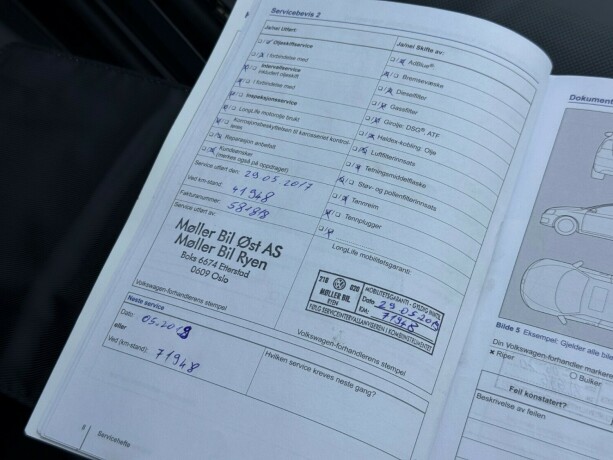 Servicebevis 2
Ja/nei Utført:
Oljeskiftservice
I forbindelse med
Intervallservice
inkludert oljeskift
I forbindelse med
Inspeksjonsservice
LongLife motorolje brukt
Korrosjonsbeskyttelsen til karosseriet kontrol-
leres
Reparasjon anbefalt
Kundeønsker
(merkes også på oppdraget)
Service utført den: 29 05 2017
Ved km-stand: 41948
Fakturanummer: 58188
Service utført av:
Møller Bil Øst AS
Møller Bil Ryen
Boks 6674 Etterstad
0609 Oslo
Volkswagen-forhandlerens stempel
Neste service
Dato: 05.2019
eller
Ved (km-stand): 71948
Ja/nei Skifte av:
AdBlue®
Bremsevæske
Dieselfilter
Gassfilter
Girolje: DSG®, ATF
Haldex-kobling: Olje
Luftfilterinnsats
Tetningsmiddelflaske
Støv- og pollenfilterinnsats
Tannreim
Tennplugger
LongLife mobilitetsgaranti:
218 020
MØLLER BIL
RYEN
MOBILITETSGARANTI - GYLDIG INNTIL
Dato 29 05 2019
KM: 71948
FØLG SERVICEINTERVALLANVISEREN I KOMBIINSTRUMENTET
Volkswagen-forhandlerens stempel
Hvilken service kreves neste gang?
8 Servicehefte
Dokument
Bilde 5 Eksempel: Gjelder alle bil
Din Volkswagen-forhandler markere
× Riper
○ Bulker
Feil konstatert?
Beskrivelse av feilen